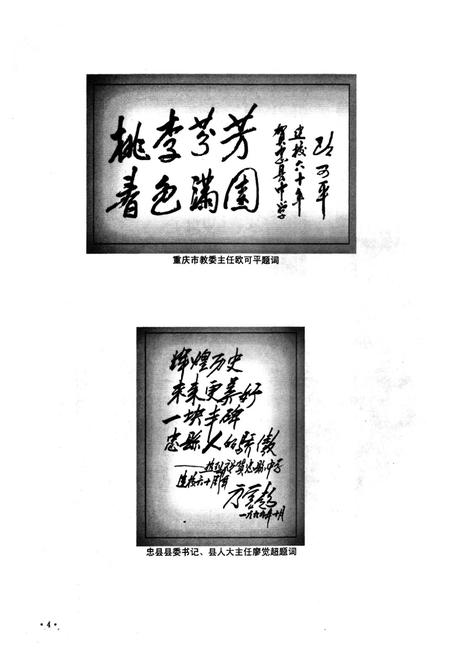 桃李芬芳
春色满园
贺忠县中学
建校六十年
欧可平
重庆市教委主任欧可平题词
辉煌历史
未来更美好
一块丰碑
忠县人的骄傲
忠县中学
建校六十周年
廖觉超
一九九九年十月
忠县县委书记、县人大主任廖觉超题词
·4·